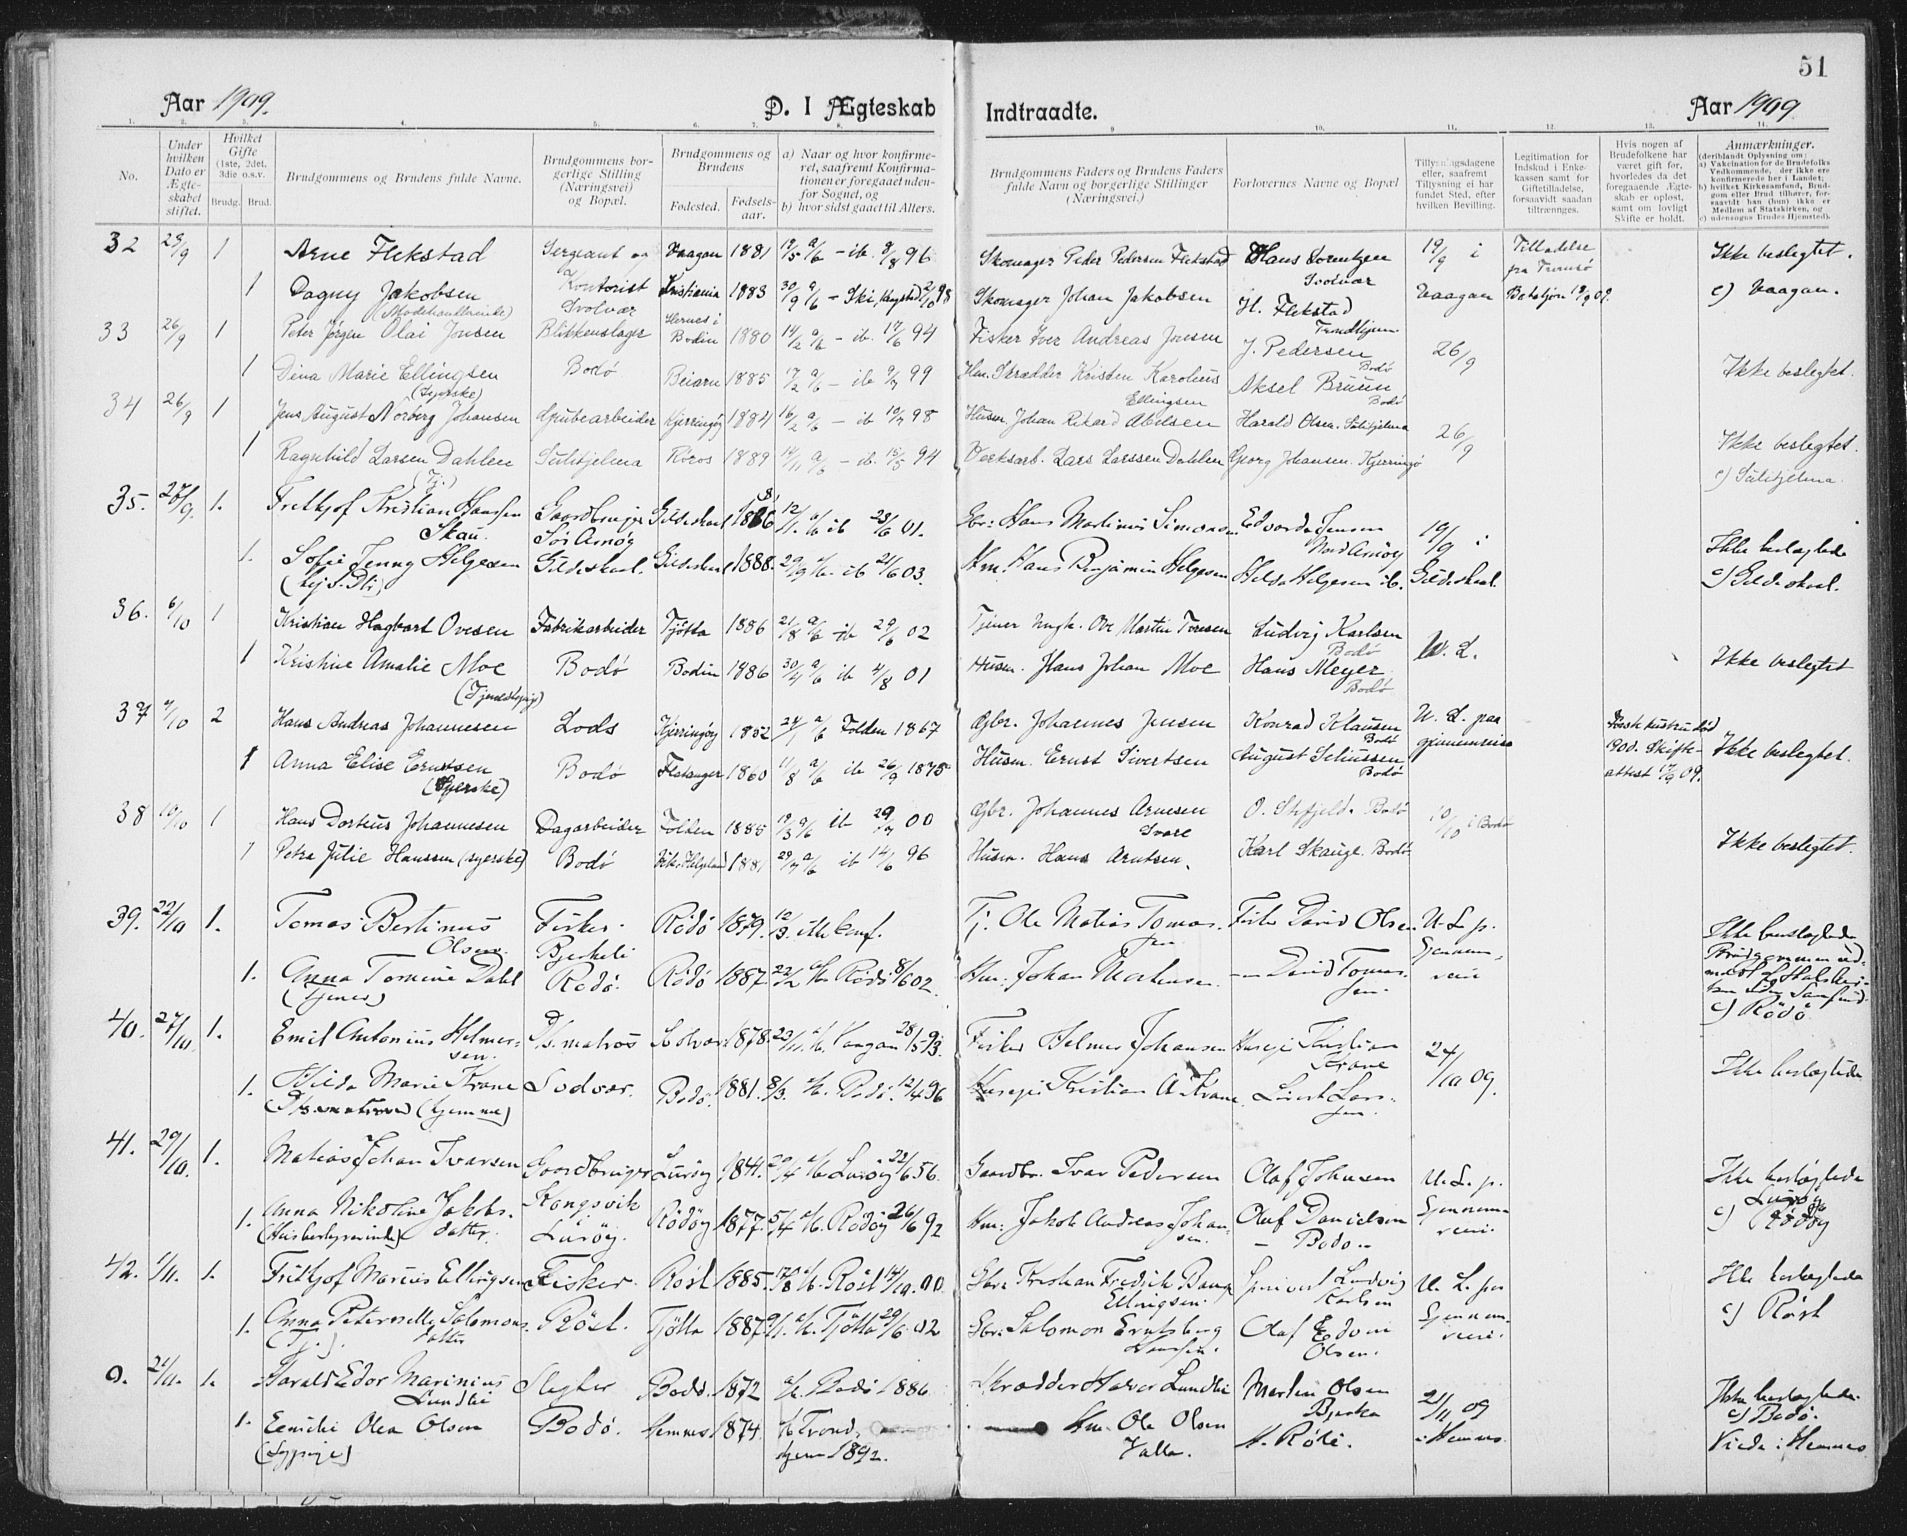 51
Aar 1909.
D. I Ægteskab
Indtraadte.
Aar 1909.
1. 2. 3. 4. 5. 6. 7. 8. 9 10. 11. 12. 13. 14.
No.
Under hvilken Dato er Ægteskabet stiftet.
Hvilket Gifte (1ste, 2det, 3die o.s.v.)
Brudg. Brud.
Brudgommens og Brudens fulde Navne.
Brudgommens borgerlige Stilling (Næringsvei) og Bopæl.
Brudgommens og Brudens
Fødested. Fødselsaar.
a) Naar og hvor konfirmeret, saafremt Konfirmationen er foregaaet udenfor Sognet, og
b) hvor sidst gaaet til Alters.
Brudgommens Faders og Brudens Faders fulde Navn og borgerlige Stillinger (Næringsvei.)
Forlovernes Navne og Bopæl
Tillysningsdagene eller, saafremt Tillysning ei har fundet Sted, efter hvilken Bevilling.
Legitimation for Indskud i Enkekassen samt for Giftetilladelse, forsaavidt saadan tiltrænges.
Hvis nogen af Brudefolkene har været gift før, hvorledes da det foregaaende Ægteskab er opløst, samt om lovligt Skifte er holdt.
Anmærkninger.
(deriblandt Oplysning om:
a) Vakcination for de Brudefolks Vedkommende, der ikke ere konfirmerede her i Landet;
b) hvilket Kirkesamfund, Brudgom eller Brud tilhører, forsaavidt han (hun) ikke er Medlem af Statskirken, og
c) udensogns Brudes Hjemsted).
32 1 Arne Flekstad Sergeant og Vaagan 1881 – ib. 8/8 96 Skomager Peder Pedersen Flekstad Hans Lorentzen Svolvær 19/9 i Tilladelse fra Tromsø Ikke beslegtet.
1 Dagny Jakobsen Kontorist Svolvær Kristiania 1883 30/9 – Ski, Skomager Johan Jakobsen H. Flekstad Trondhjem Vaagan c) Vaagan.
33 26/9 1 Peter Jørgen Olai Jensen Blikkenslager Hernes i Bodin 1880 14/2 – ib. 94 Fisker Iver Andreas Jensen J. Pedersen Bodø 26/9
1 Dina Marie Ellingsen (Syerske) Bodø Beiarn 1885 17/2 – ib 99 Hm. Skrædder Kristen Karolius Ellingsen Aksel Bruun Bodø Ikke beslegtet.
34 26/9 1 Jens August Norberg Johansen Grubearbeider Kjerringøy 1884 16/2 – ib 98 Husm. Johan Rikard Abelsen Harald Olsen. Sulitjelma 26/9
1 Ragnhild Larsen Dahlen (Tj.) Sulitjelma Røros 1889 14/11 – ib. 15/5 94 Verksarb. Lars Larssen Dahlen Georg Johansen. Kjerringø Ikke beslegtet. c) Sulitjelma.
35. 1. Fritkjof Kristian Hansen Skau. Gaardbruger Sør Arnøy Gildeskaal 12/1. ib 01. Gbr: Hans Martinus Simonsen Edvard Jensen Nord Arnøy 19/9 i
1. Sofie Jenny Helgesen Gildeskaal. Gildeskaal 1888. ib 21/6 03. Hm. Hans Benjamin Helgesen Hilda Helgesen ib. Gildeskaal. Ikke beslægtede c) Gildeskaal.
36. 6/10 1 Kristian Hagbart Ovesen Fabrikarbeider Tjøtta 1886 21/8 ib 29/6 02 Tjener Ungk. Ove Martin Tomesen Ludvig Karlsen Bodø U. L.
1 Kristine Amalie Moe (Tjenestepige) Bodø Bodin 1886 30/4 ib 4/8 01 Husm. Hans Johan Moe Hans Meyer Bodø Ikke beslegtet
37 9/10 2 Hans Andreas Johannesen Lods Kjerringøy 1852 24/1 Folden 1867 Gbr. Johannes Jensen Konrad Klausen Bodø U. L. paa gjennemreise
1 Anna Elise Erntsen (Syerske) Bodø Flatanger 1860 11/8 ib 26/9 1875 Husm. Ernst Sivertsen August Seliussen Bodø Ikke beslegtet.
38 10/10 1 Hans Dortius Johannesen Dagarbeider Folden 1885 19/3 ib 29/7 00 Gbr. Johannes Arnesen Svare O. Skfjeld. Bodø 10/10 i Bodø
1 Petra Julie Hanssen (syerske) Bodø 1881 29/7 ib 14/6 96 Husm. Hans Arntsen. Karl Skaugl. Bodø Ikke beslegtet.
39. 22/10 1. Tomas Bertinus Olsen. Fisker. Bjerkeli Rødø 1879. 12/3. ikke konf. Tj. Ole Matias Tomassen Fisker David Olsen U. L. p. Gjennemreise Ikke beslægtede
1. Anna Tomine Dahl (Tjener) Rødø. Rødø 1887. 22/2 Rødø 8/6 02. Hm: Johan Mortensen. — David Tomassen. c) Rødø.
40. 27/10. 1. Emil Antonius Helmersen. D/s. matros Svolvær 1878. 23/11. Vaagan 28/5 93. Fisker Helmer Johansen Huseje Kristian Krane 24/10 09.
1. Hilda Marie Krane (hjemme) Svolvær. Bodø. 1881. 8/3. Bodø. 12/4 96 Huseje Kristian A Krane. Lars Larssen. Ikke beslægtede
41. 29/10. 1. Matias Johan Ivarsen Gaardbruger Lurøy 1841. Lurøy 22/6 56. Gaardbr. Ivar Pedersen Olaf Johnsen U. L. p.
1. Anna Nikoline Jakobsdatter. (Husbestyrerinde) Kongsvik i Lurøy. Rødøy 1877. 5/4 Rødøy 26/6 92 Hm: Jakob Andreas Johansen. Olaf Danielsen – Bodø.. Gjennemreise. Ikke beslægtede c) Rødøy
42. 1/11. 1. Fritkjof Marius Ellingsen Fisker. Røst 1885. Røst 14/10. 00. Gbr. Kristian Fredrik Bang Ellingsen. Ludvig Karlsen U. L. paa
1. Anna Peternelle Salomonsdatter (Tj.). Røst. Tjøtta 1887. Tjøtta 29/6 02 Gbr. Salomon Erntsberg Hansen. Olaf Edvin Olsen. Gjennemreise. Ikke beslægtede c) Røst
0. 21/11. 1. Harald Edor Marinius Lundli Slagter Bodø. 1872 Bodø 1886 Skrædder Halvor Lundli Martin Olsen Bjerka 21/11 09
1. Emilie Olea Olsen (Sypige) Bodø. Hemnes 1874. Trondhjem 1892. Hm. Ole Olsen Valla. A. Røli. i Hemnes. Ikke beslægtede. c) Bodø. Viede i Hemnes